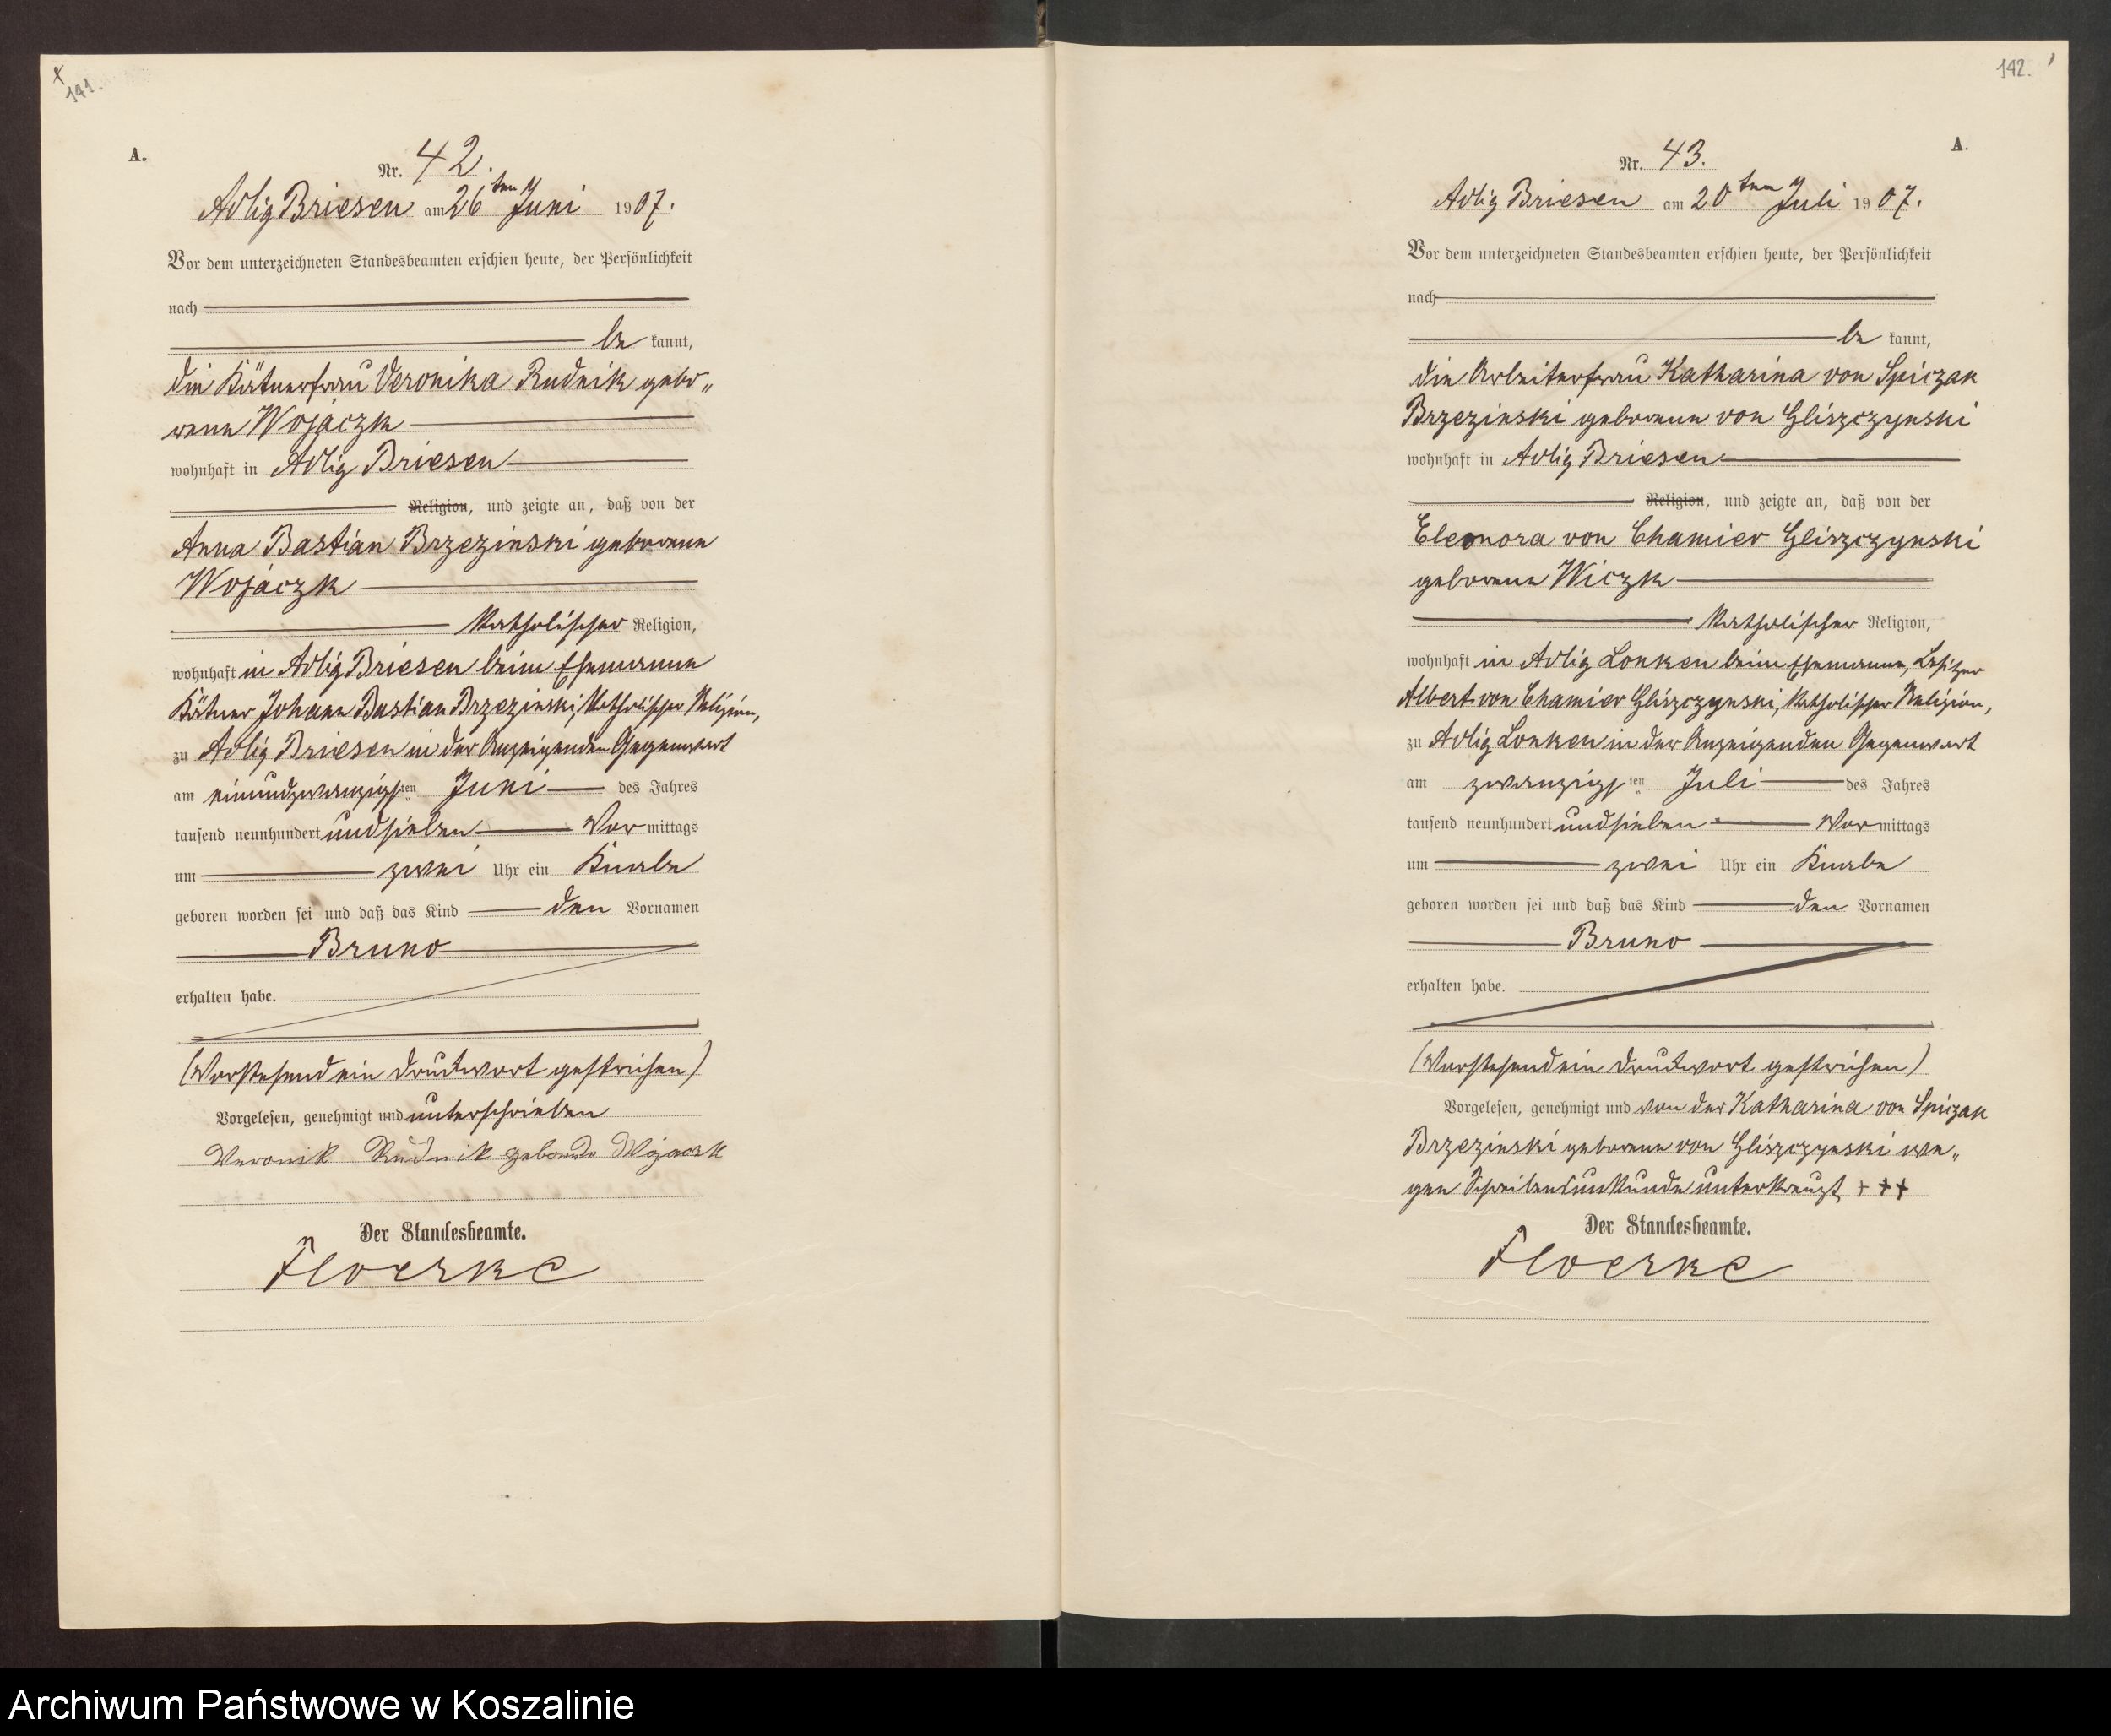 141.
A.
Nr. 42.
Adlig Briesen am 26ten Juni 1907.
Vor dem unterzeichneten Standesbeamten erschien heute, der Persönlichkeit
nach
be kannt,
die Kätnerfrau Veronika Rudnik gebo„
rene Wojaczk
wohnhaft in Adlig Briesen
Religion, und zeigte an, daß von der
Anna Bastian Brzezinski geborene
Wojaczk
katholischer Religion,
wohnhaft in Adlig Briesen beim Ehemanne
Kätner Johann Bastian Brzezinski, katholischer Religion,
zu Adlig Briesen in der Anzeigenden Gegenwart
am einundzwanzigsten Juni des Jahres
tausend neunhundert und sieben Vor mittags
um zwei Uhr ein Knabe
geboren worden sei und daß das Kind den Vornamen
Bruno
erhalten habe.
(Vorstehend ein Druckwort gestrichen)
Vorgelesen, genehmigt und unterschrieben
Veronik Rudnik geborene Wojaczk
Der Standesbeamte.
Floerke
142.
A.
Nr. 43.
Adlig Briesen am 20ten Juli 1907.
Vor dem unterzeichneten Standesbeamten erschien heute, der Persönlichkeit
nach
be kannt,
die Arbeiterfrau Katharina von Spiczak
Brzezinski geborene von Gliszczynski
wohnhaft in Adlig Briesen
Religion, und zeigte an, daß von der
Eleonora von Chamier Gliszczynski
geborene Wiczk
katholischer Religion,
wohnhaft in Adlig Lonken beim Ehemanne, Besitzer
Albert von Chamier Gliszczynski, katholischer Religion,
zu Adlig Lonken in der Anzeigenden Gegenwart
am zwanzigsten Juli des Jahres
tausend neunhundert und sieben Vor mittags
um zwei Uhr ein Knabe
geboren worden sei und daß das Kind den Vornamen
Bruno
erhalten habe.
(Vorstehend ein Druckwort gestrichen)
Vorgelesen, genehmigt und von der Katharina von Spiczak
Brzezinski geborene von Gliszczynski we„
gen Schreibensunkunde unterkreuzt +++
Der Standesbeamte.
Floerke
Archiwum Państwowe w Koszalinie